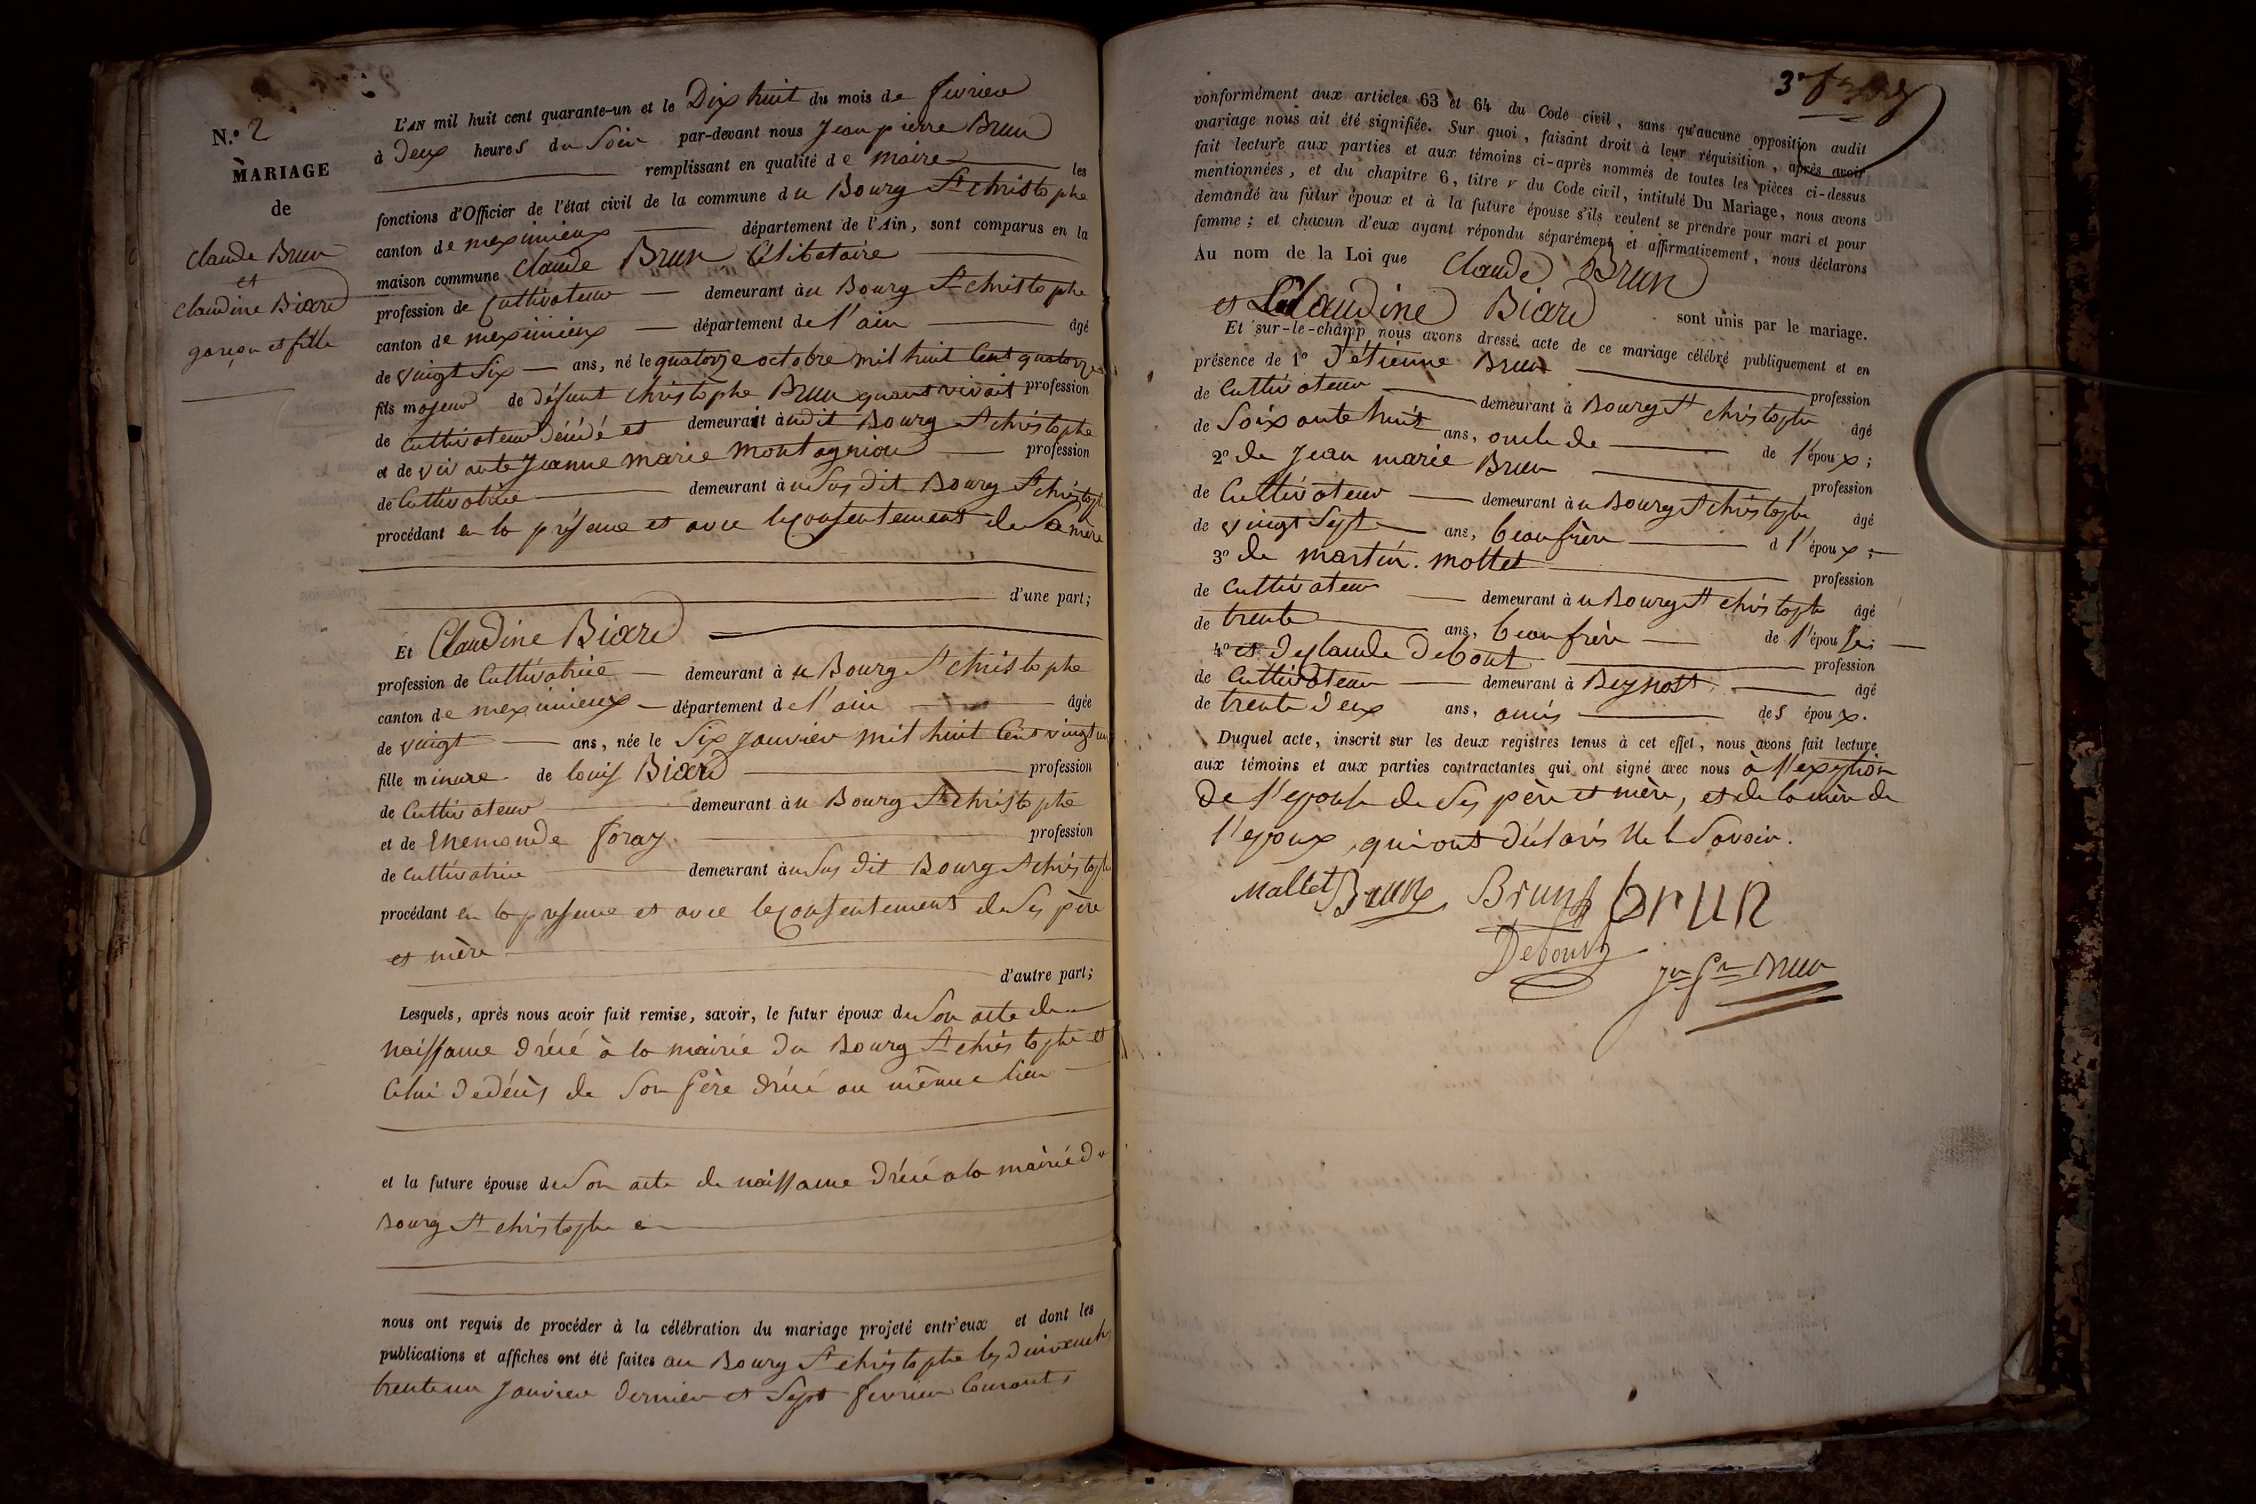 N.o 2
MARIAGE
de
Claude Brun
et
Claudine Biard
garçon et fille
L'AN mil huit cent quarante-un et le Dix huit du mois de fevrier
à Deux heures du Soir par-devant nous Jean pierre Brun
remplissant en qualité de maire les
fonctions d'Officier de l'état civil de la commune du Bourg St christophe
canton de meximieux département de l'Ain, sont comparus en la
maison commune Claude Brun Célibataire
profession de Cultivateur demeurant au Bourg St christophe
canton de meximieux département de l'ain âgé
de vingt Six ans, né le quatorze octobre mil huit Cent quatorze
fils majeur de défunt christophe Brun quant vivait profession
de Cultivateur décédé et demeurait audit Bourg St christophe
et de vivante Jeanne marie montagnion profession
de Cultivatrice demeurant au Sus dit Bourg St christophe
procédant en la présence et avec le consentement de Sa mère
d'une part;
Et Claudine Biard
profession de Cultivatrice demeurant à u Bourg St christophe
canton de meximieux département de l'ain âgée
de vingt ans, née le Six Janvier mil huit Cent vingt un
fille mineure de louis Biard profession
de Cultivateur demeurant au Bourg St christophe
et de Enemonde foray profession
de Cultivatrice demeurant au Sus dit Bourg St christophe
procédant en la présence et avec le consentement de Ses père
et mère
d'autre part;
Lesquels, après nous avoir fait remise, savoir, le futur époux de Son acte de
naissance Drécé à la mairie du Bourg St christophe et
Celui de décès de Son père Drécé au même lieu
et la future épouse de Son acte de naissance Drécé a la mairie du
Bourg St christophe
nous ont requis de procéder à la célébration du mariage projeté entr'eux et dont les
publications et affiches ont été faites au Bourg St christophe les Dimanches
trente un Janvier dernier et Sept fevrier Courant
3e
conformément aux articles 63 et 64 du Code civil, sans qu'aucune opposition audit
mariage nous ait été signifiée. Sur quoi, faisant droit à leur réquisition, après avoir
fait lecture aux parties et aux témoins ci-après nommés de toutes les pièces ci-dessus
mentionnées, et du chapitre 6, titre v du Code civil, intitulé Du Mariage, nous avons
demandé au futur époux et à la future épouse s'ils veulent se prendre pour mari et pour
femme; et chacun d'eux ayant répondu séparément et affirmativement, nous déclarons
Au nom de la Loi que Claude Brun
et Claudine Biard sont unis par le mariage.
Et sur-le-champ nous avons dressé acte de ce mariage célébré publiquement et en
présence de 1o D'étienne Brun profession
de Cultivateur demeurant à Bourg St christophe âgé
de Soixante huit ans, oncle de de l'époux;
2o de Jean marie Brun profession
de Cultivateur demeurant à u Bourg St christophe âgé
de vingt Sept ans, beau frère d l'époux;
3o de martin mottet profession
de Cultivateur demeurant à u Bourg St christophe âgé
de trente ans, beau frère de l'épouse;
4o et De Claude Debout profession
de Cultivateur demeurant à Beynost âgé
de trente Deux ans, amis des époux.
Duquel acte, inscrit sur les deux registres tenus à cet effet, nous avons fait lecture
aux témoins et aux parties contractantes qui ont signé avec nous à l'exeption
De l'epouse de Ses père et mère, et de la mère de
l'epoux, qui ont déclarés Ne le Savoir.
Mallet Brun Brun brun
Debout
Jn Pre Brun